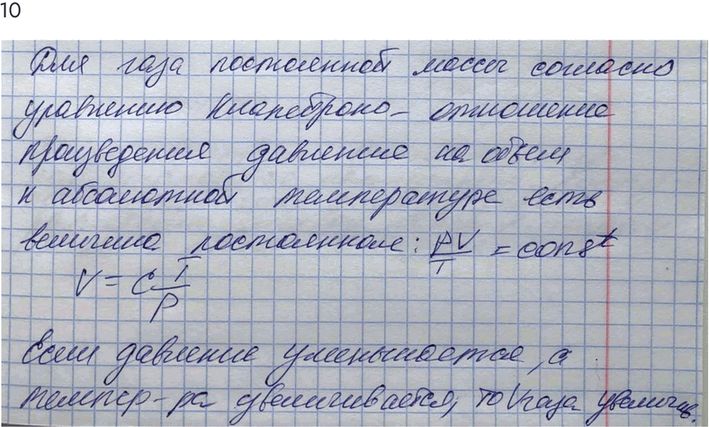 10
Для газа постоянной массы согласно
уравнению Клапейрона - отношение
произведения давление на объем
к абсолютной температуре есть
величина постоянная: PV/T = const
V = C T/P
Если давление уменьшается, а
темпер-ра увеличивается, то V газа увелич.